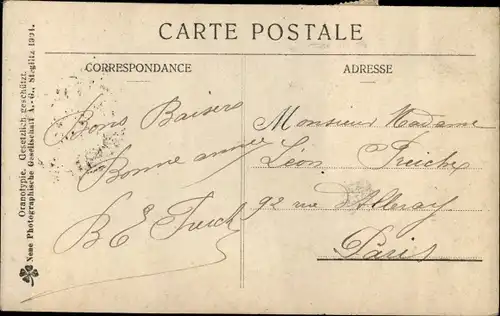 CARTE POSTALE
CORRESPONDANCE
ADRESSE
Bons Baisers
Bonne année
B E
Monsieur Madame
Léon
92 rue d'Alleray
Paris
Oranotypie. Gesetzlich geschützt.
Neue Photographische Gesellschaft A.-G., Steglitz 1904.